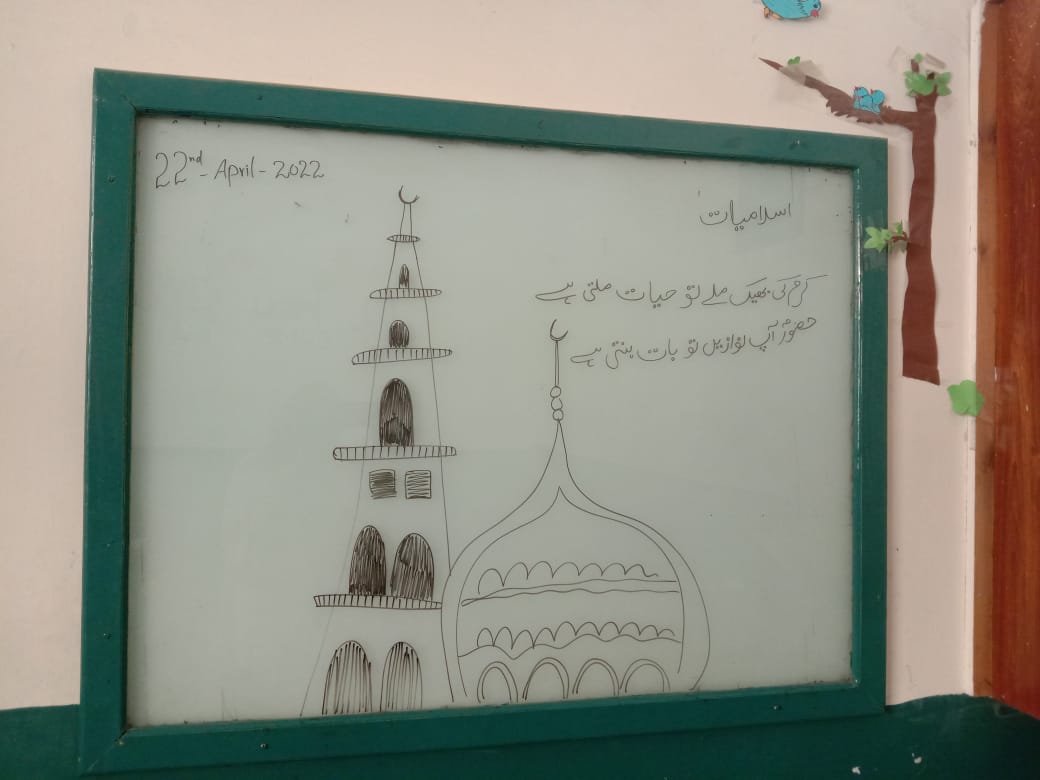 22nd - April - 2022
اسلامیات
کرم کی بھیک ملے تو حیات ملتی ہے
حضورؐ آپ نوازیں تو بات بنتی ہے